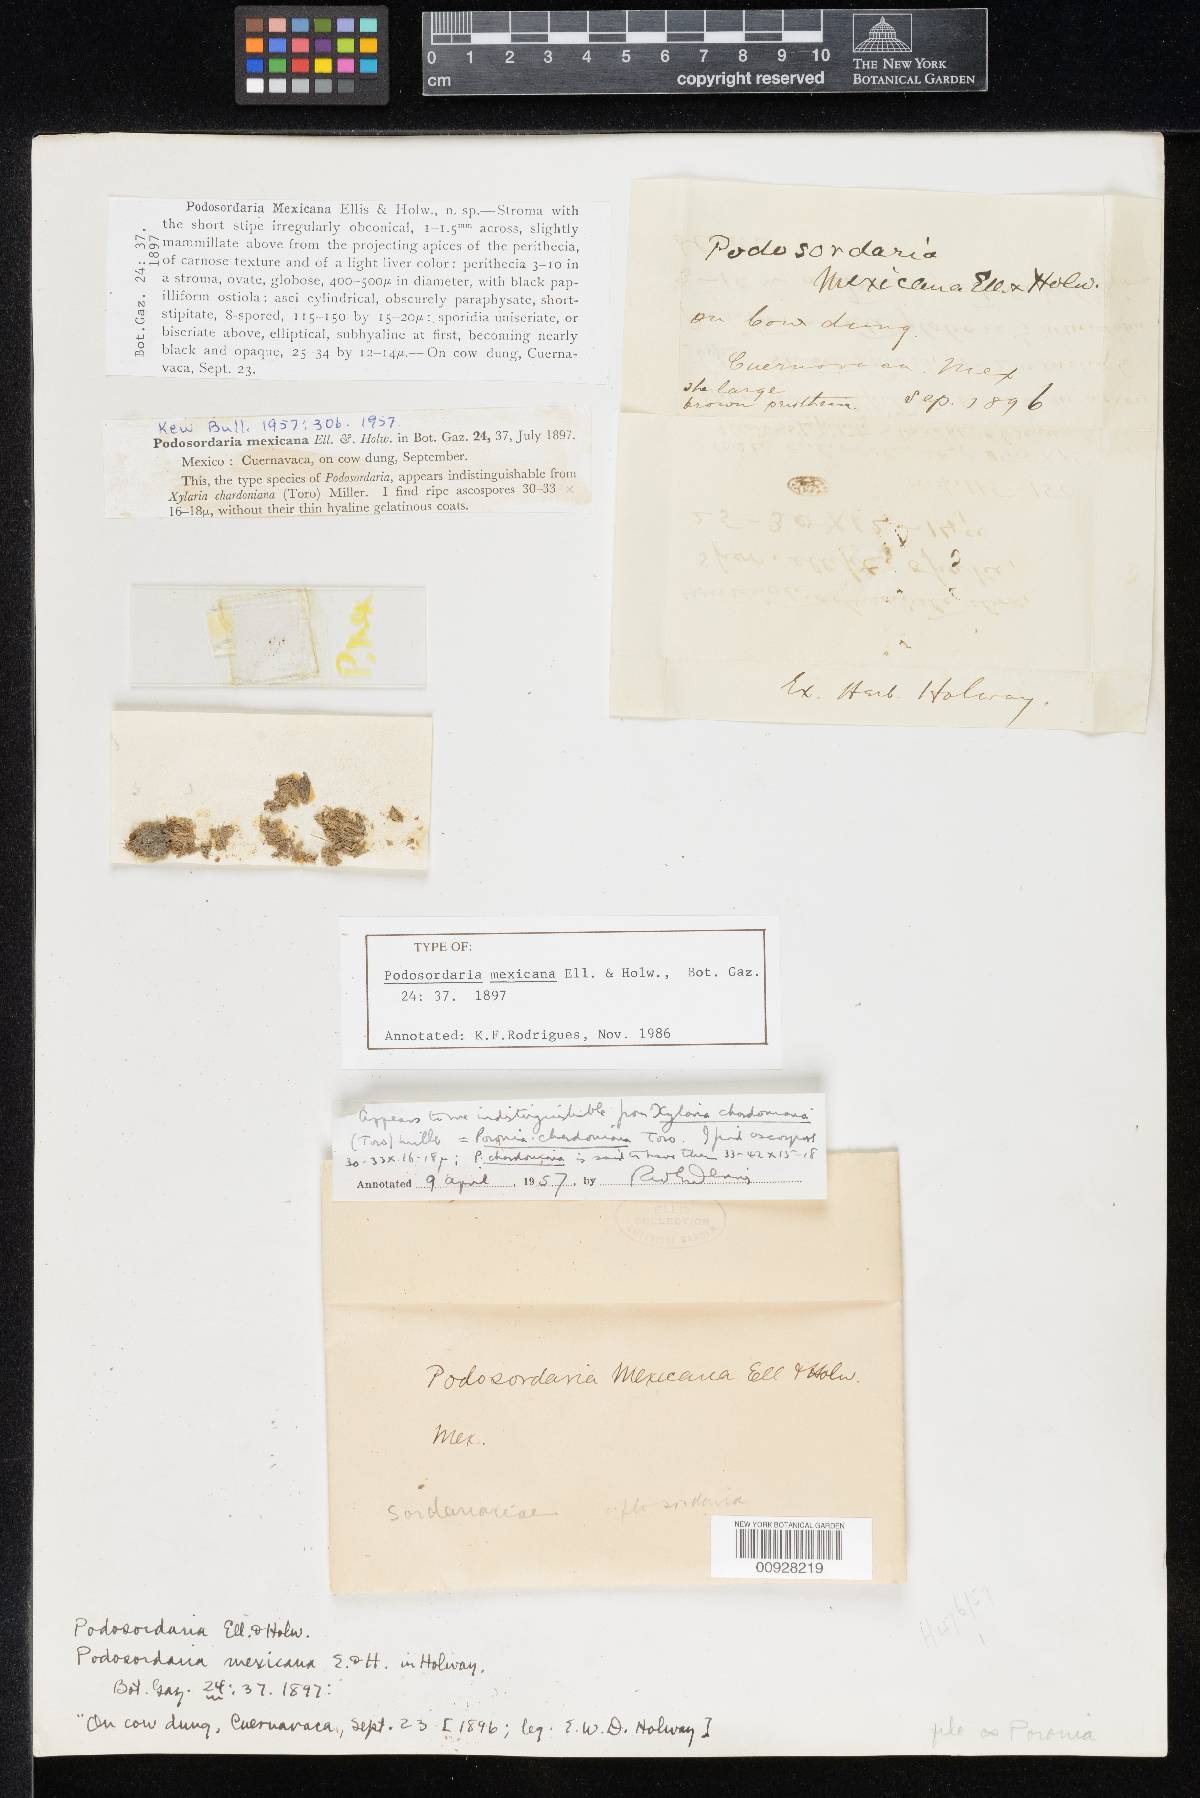 0 1 2 3 4 5 6 7 8 9 10
cm
copyright reserved
THE NEW YORK
BOTANICAL GARDEN
Bot. Gaz. 24: 37.
1897
Podosordaria Mexicana Ellis & Holw., n. sp.—Stroma with
the short stipe irregularly obconical, 1–1.5mm across, slightly
mammillate above from the projecting apices of the perithecia,
of carnose texture and of a light liver color: perithecia 3–10 in
a stroma, ovate, globose, 400–500μ in diameter, with black pap-
illiform ostiola: asci cylindrical, obscurely paraphysate, short-
stipitate, 8-spored, 115–150 by 15–20μ: sporidia uniseriate, or
biseriate above, elliptical, subhyaline at first, becoming nearly
black and opaque, 25–34 by 12–14μ.—On cow dung, Cuerna-
vaca, Sept. 23.
Kew Bull. 1957: 306. 1957.
Podosordaria mexicana Ell. &. Holw. in Bot. Gaz. 24, 37, July 1897.
Mexico : Cuernavaca, on cow dung, September.
This, the type species of Podosordaria, appears indistinguishable from
Xylaria chardoniana (Toro) Miller. I find ripe ascospores 30–33 ×
16–18μ, without their thin hyaline gelatinous coats.
Podosordaria
Mexicana Ell. & Holw.
on Cow dung.
Cuernavaca. Mex
the large
brown Sep. 1896
Ex. Herb. Holway.
P. mex
TYPE OF:
Podosordaria mexicana Ell. & Holw., Bot. Gaz.
24: 37. 1897
Annotated: K.F.Rodrigues, Nov. 1986
Appears to me indistinguishable from Xylaria chardoniana
(Toro) Miller = Poronia chardoniana Toro. I find ascospores
30-33 x 16-18μ; P. chardoniana is said to have them 33-42 x 15-18
Annotated 9 April, 1957, by
ELLIS
COLLECTION
Podosordaria Mexicana Ell & Holw.
Mex.
Sordariaceae
NEW YORK BOTANICAL GARDEN
00928219
Podosordaria Ell. & Holw.
Podosordaria mexicana E. & H. in Holway,
Bot. Gaz. 24: 37. 1897:
"On cow dung, Cuernavaca, Sept. 23 [1896; leg. E. W. D. Holway]
file as Poronia